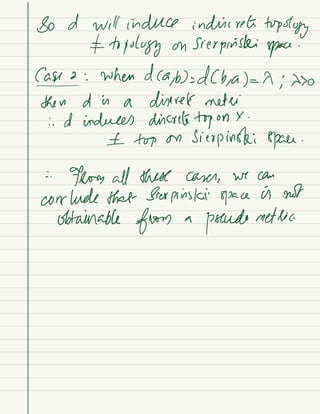 So d will induce indiscrete topology
≠ topology on Sierpiński space.
Case 2 : when d(a,b)=d(b,a)=λ ; λ>0
then d is a discrete metric
∴ d induces discrete top on X.
≠ top on Sierpinski space.
∴ From all these cases, we can
conclude that Sierpinski space is not
obtainable from a pseudo metric